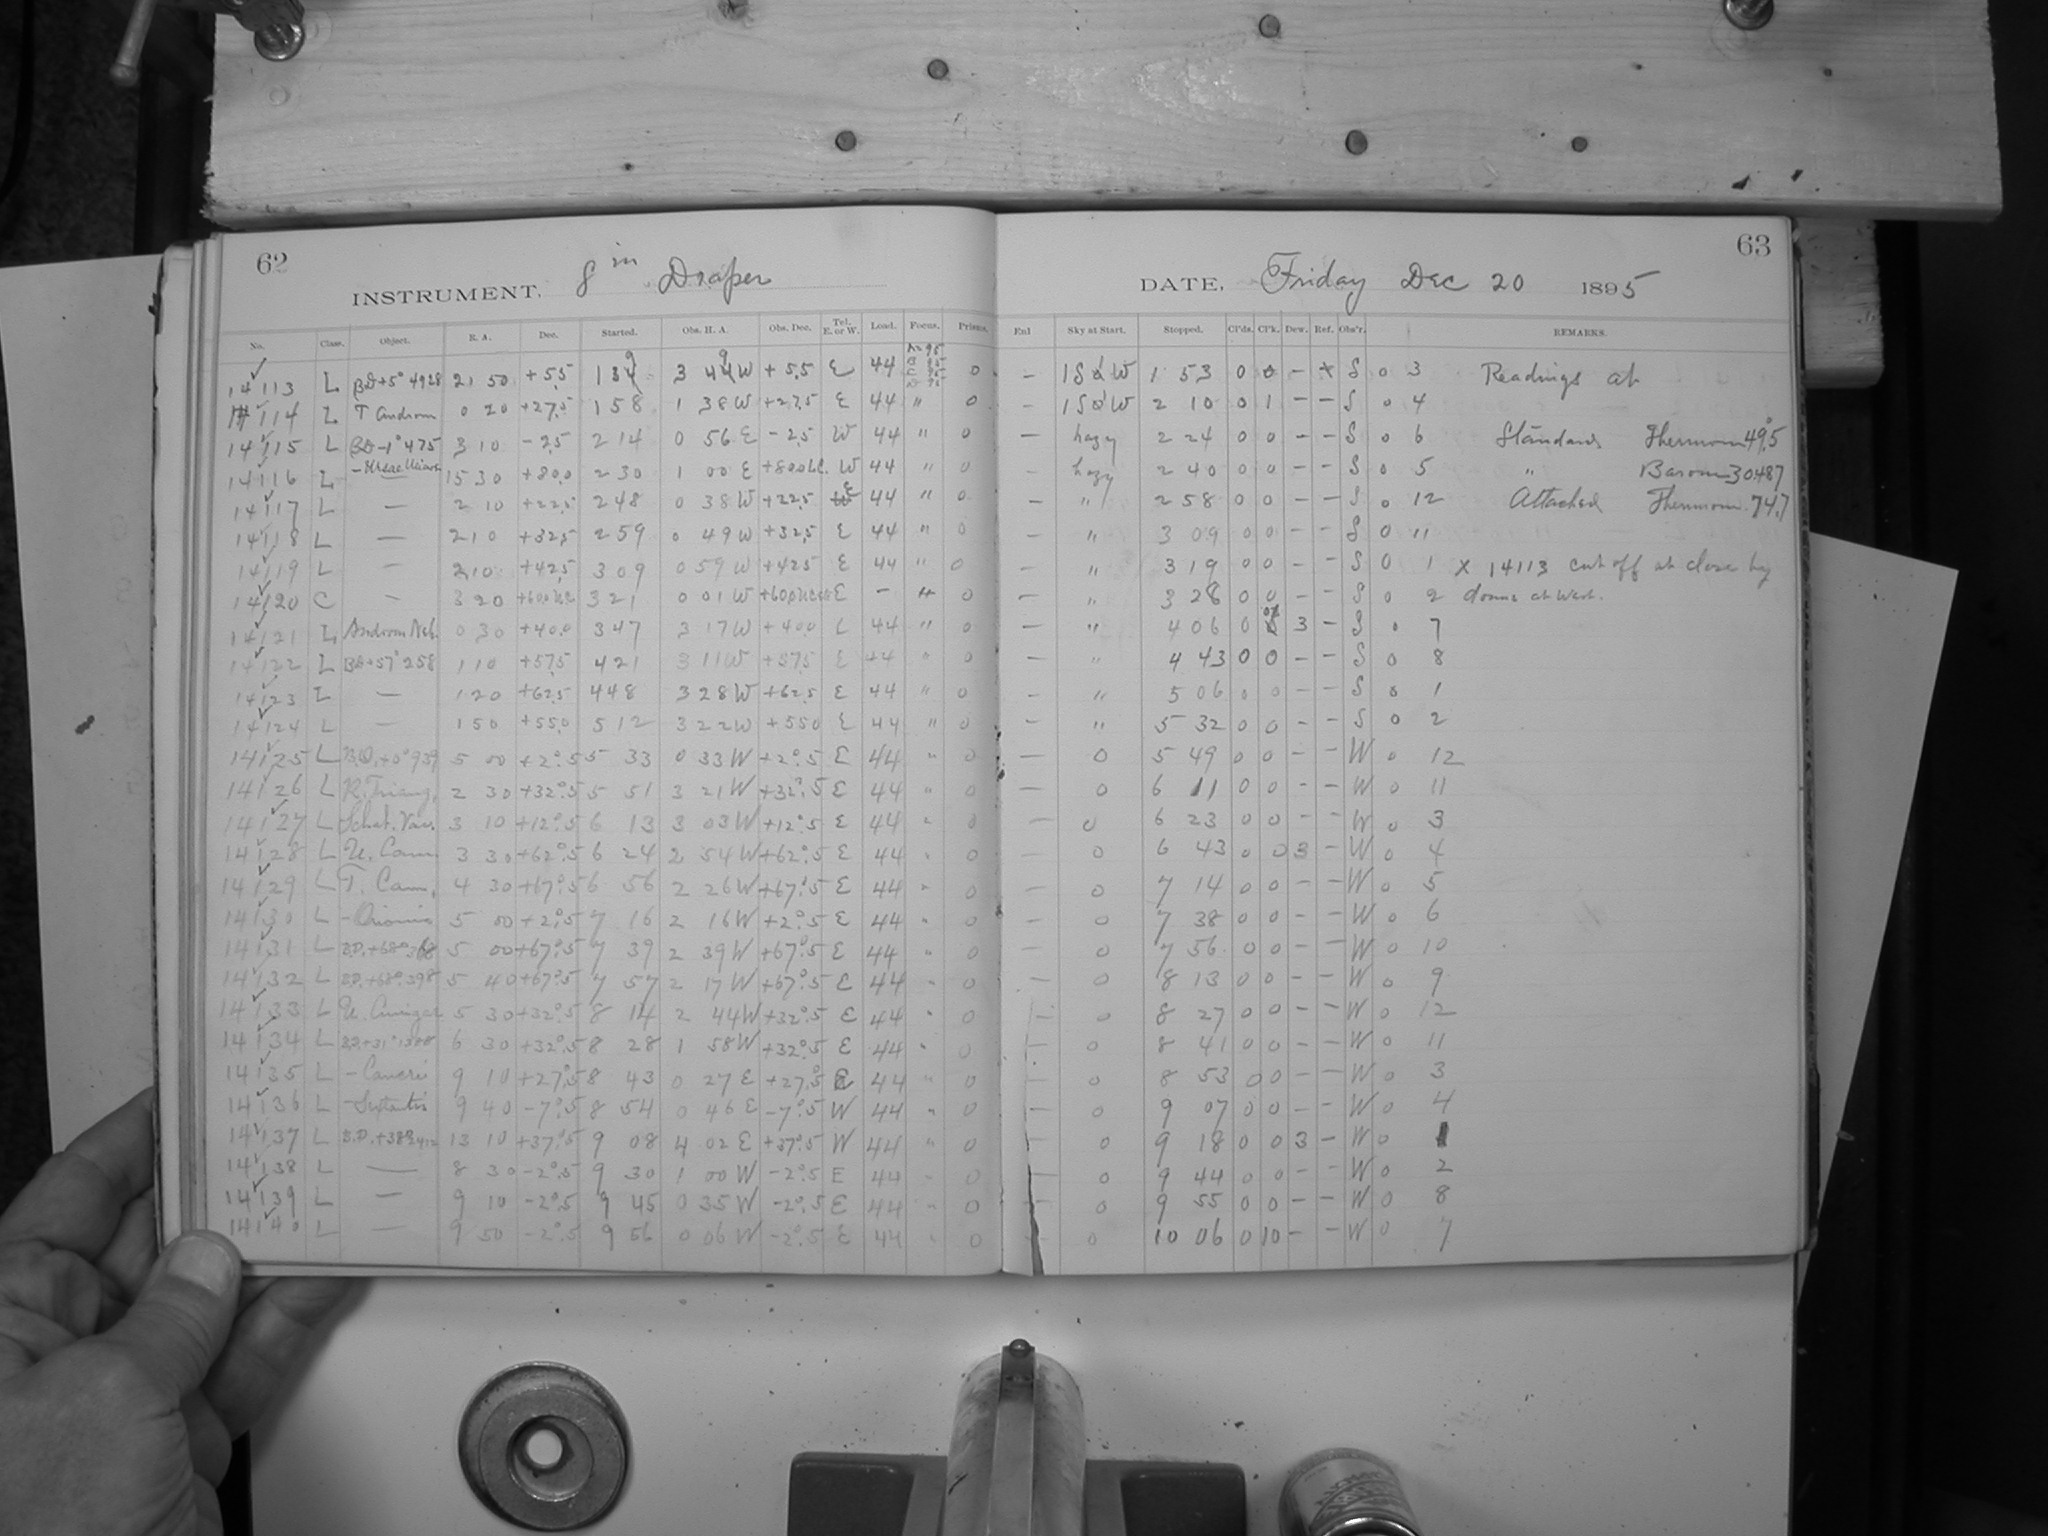 62
INSTRUMENT, 8 in Draper
No. Class. Object. R. A. Dec. Started. Obs. H. A. Obs. Dec. Tel. E. or W. Load. Focus. Prisms.
14113 L BD+5° 4928 21 50 +5,5 1 39 3 49 W +5,5 E 44 0
14114 L T Androm 0 20 +27,5 1 58 1 38 W +27,5 E 44 " 0
14115 L BD-1° 475 3 10 -2,5 2 14 0 56 E -2,5 W 44 " 0
14116 L 15 30 +80,0 2 30 1 00 E +80,0 LC. W 44 " 0
14117 L — 2 10 +22,5 2 48 0 38 W +22,5 E 44 " 0
14118 L — 2 10 +32,5 2 59 0 49 W +32,5 E 44 " 0
14119 L — 2 10 +42,5 3 09 0 59 W +42,5 E 44 " 0
14120 C — 3 20 3 21 0 01 W E - " 0
14121 L Androm Neb. 0 30 +40,0 3 47 3 17 W +40,0 E 44 " 0
14122 L BD+57° 258 1 10 +57,5 4 21 3 11 W +57,5 E 44 " 0
14123 L — 1 20 +62,5 4 48 3 28 W +62,5 E 44 " 0
14124 L — 1 50 +55,0 5 12 3 22 W +55,0 E 44 " 0
14125 L B.D.+0° 939 5 00 +2°.5 5 33 0 33 W +2°.5 E 44 " 0
14126 L R. Triang. 2 30 +32°.5 5 51 3 21 W +32°.5 E 44 " 0
14127 L 3 10 +12°.5 6 13 3 03 W +12°.5 E 44 " 0
14128 L U. Cam. 3 30 +62°.5 6 24 2 54 W +62°.5 E 44 " 0
14129 L T. Cam. 4 30 +67°.5 6 56 2 26 W +67°.5 E 44 " 0
14130 L - Orionis 5 00 +2°.5 7 16 2 16 W +2°.5 E 44 " 0
14131 L B.D.+68° 368 5 00 +67°.5 7 39 2 39 W +67°.5 E 44 " 0
14132 L B.D.+68° 398 5 40 +67°.5 7 57 2 17 W +67°.5 E 44 " 0
14133 L U. Aurigae 5 30 +32°.5 8 14 2 44 W +32°.5 E 44 " 0
14134 L B.D.+31° 1388 6 30 +32°.5 8 28 1 58 W +32°.5 E 44 " 0
14135 L - Cancri 9 10 +27°.5 8 43 0 27 E +27°.5 E 44 " 0
14136 L - Sextantis 9 40 -7°.5 8 54 0 46 E -7°.5 W 44 " 0
14137 L B.D.+38° 2412 13 10 +37°.5 9 08 4 02 E +37°.5 W 44 " 0
14138 L — 8 30 -2°.5 9 30 1 00 W -2°.5 E 44 " 0
14139 L — 9 10 -2°.5 9 45 0 35 W -2°.5 E 44 " 0
14140 L — 9 50 -2°.5 9 56 0 06 W -2°.5 E 44 " 0
63
DATE, Friday Dec 20 1895
Enl Sky at Start. Stopped. Cl'ds. Cl'k. Dew. Ref. Obs'r. REMARKS.
- 1 53 0 0 - x S 0 3 Readings at
- 2 10 0 1 - - S 0 4
- hazy 2 24 0 0 - - S 0 6 Standard Thermom 49°,5
- hazy 2 40 0 0 - - S 0 5 " Barom 30.487
- " 2 58 0 0 - - S 0 12 Attached Thermom. 74.7
- " 3 09 0 0 - - S 0 11
- " 3 19 0 0 - - S 0 1 X 14113 cut off at close by
- " 3 28 0 0 - - S 0 2 dome at West.
- " 4 06 0 3 - S 0 7
- " 4 43 0 0 - - S 0 8
- " 5 06 0 0 - - S 0 1
- " 5 32 0 0 - - S 0 2
- 0 5 49 0 0 - - W 0 12
- 0 6 11 0 0 - - W 0 11
- 0 6 23 0 0 - - W 0 3
- 0 6 43 0 0 3 - W 0 4
- 0 7 14 0 0 - - W 0 5
- 0 7 38 0 0 - - W 0 6
- 0 7 56 0 0 - - W 0 10
- 0 8 13 0 0 - - W 0 9
- 0 8 27 0 0 - - W 0 12
- 0 8 41 0 0 - - W 0 11
- 0 8 53 0 0 - - W 0 3
- 0 9 07 0 0 - - W 0 4
- 0 9 18 0 0 3 - W 0 1
- 0 9 44 0 0 - - W 0 2
- 0 9 55 0 0 - - W 0 8
- 0 10 06 0 10 - - W 0 7